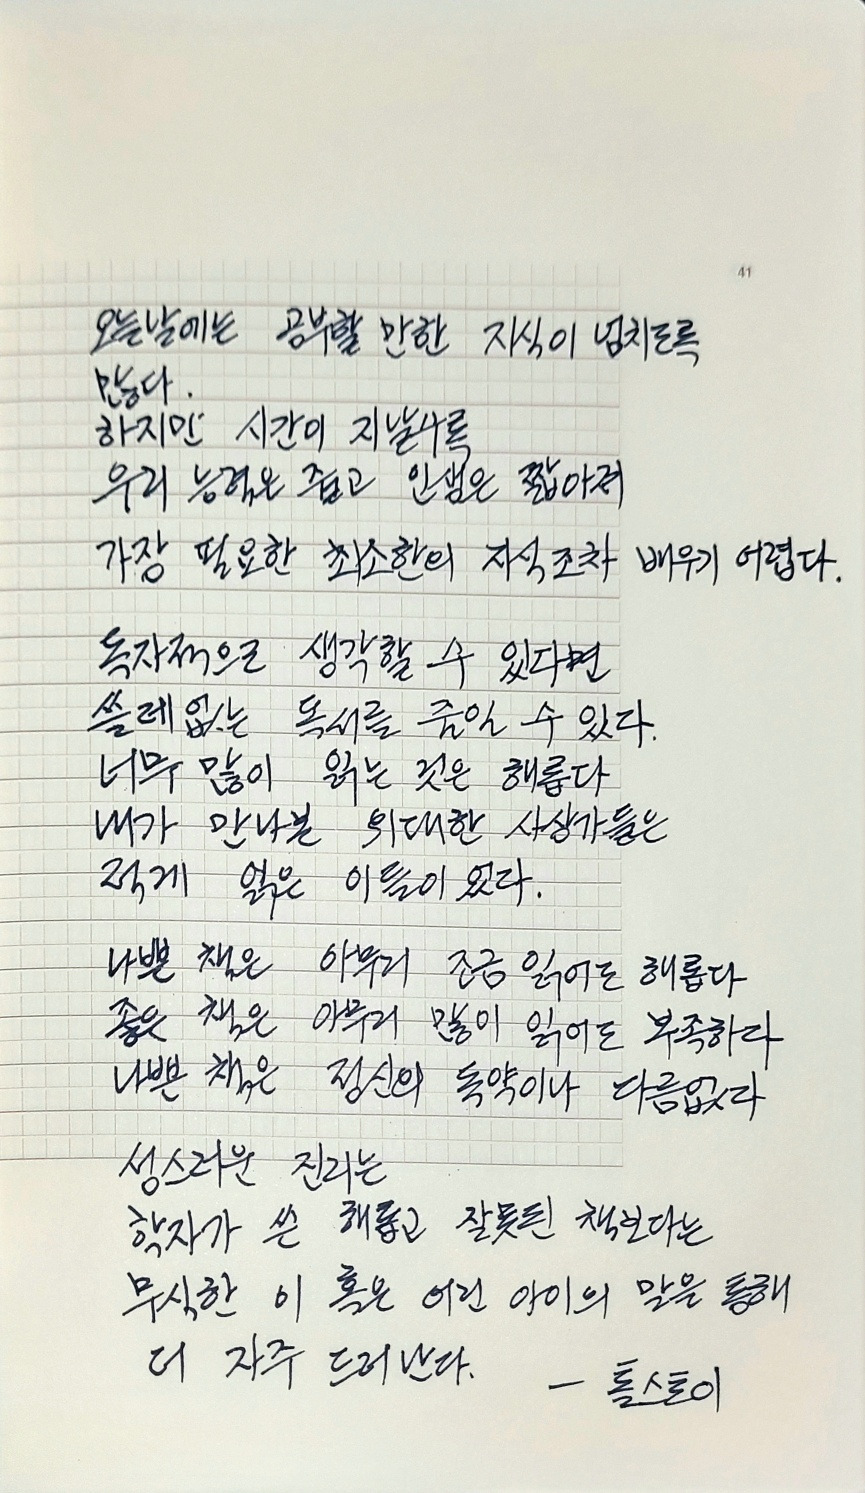 41
오늘날에는 공부할 만한 지식이 넘치도록
많다.
하지만 시간이 지날수록
우리 능력은 줄고 인생은 짧아져
가장 필요한 최소한의 지식조차 배우기 어렵다.
독자적으로 생각할 수 있다면
쓸데없는 독서를 줄일 수 있다.
너무 많이 읽는 것은 해롭다
내가 만나본 위대한 사상가들은
적게 읽은 이들이었다.
나쁜 책은 아무리 조금 읽어도 해롭다
좋은 책은 아무리 많이 읽어도 부족하다
나쁜 책은 정신의 독약이나 다름없다
성스러운 진리는
학자가 쓴 해롭고 잘못된 책보다는
무식한 이 혹은 어린 아이의 말을 통해
더 자주 드러난다.
— 톨스토이